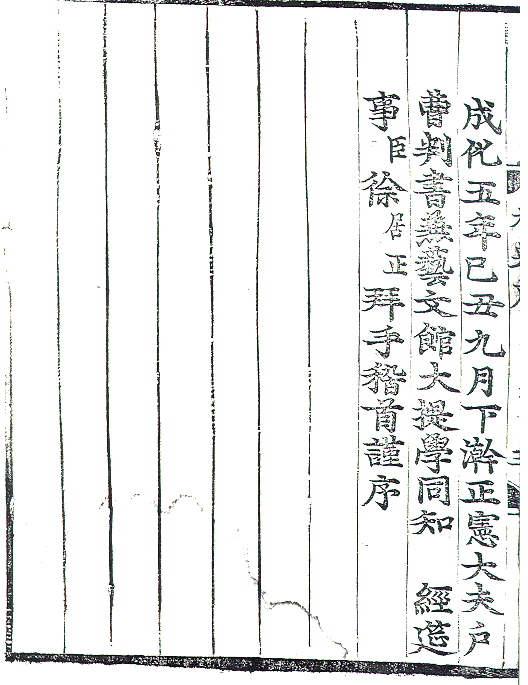 成化五年己丑九月下澣正憲大夫户
曹判書兼藝文館大提學同知 經筵
事臣徐居正拜手稽首謹序